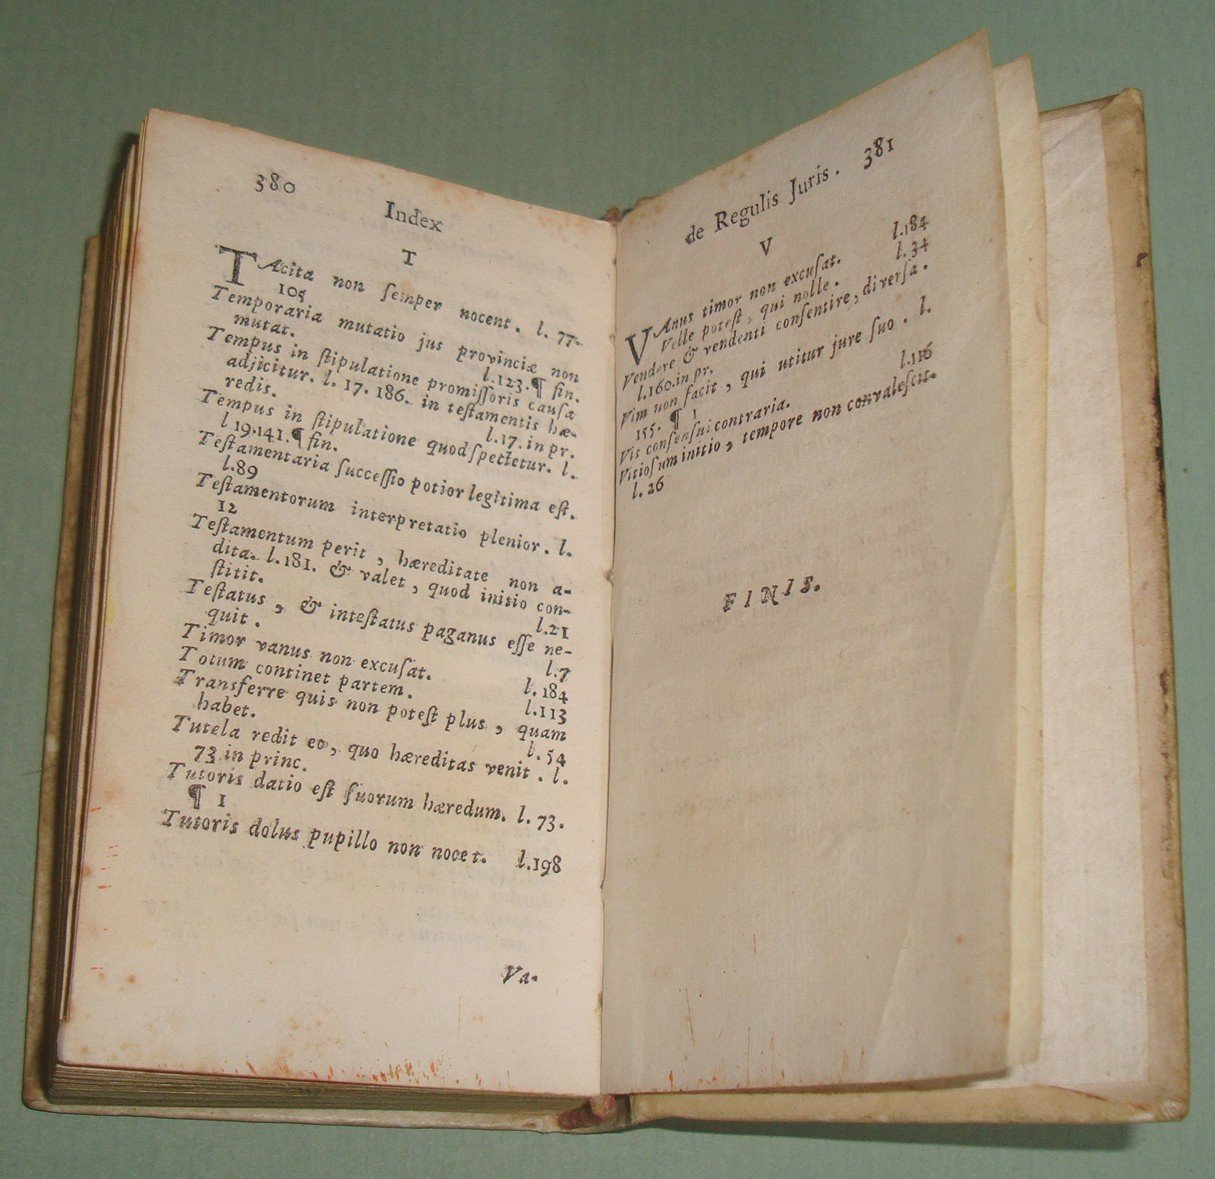 380
Index
T
TAcita non ſemper nocent. l. 77.
105
Temporaria mutatio jus provinciæ non
mutat. l.123.¶ fin.
Tempus in ſtipulatione promiſſoris cauſa
adjicitur. l. 17. 186. in teſtamentis hæ-
redis. l.17. in pr.
Tempus in ſtipulatione quod ſpectetur. l.
l 19.141.¶ fin.
Teſtamentaria ſucceſſio potior legitima eſt.
l.89
Teſtamentorum interpretatio plenior. l.
12
Teſtamentum perit, hæreditate non a-
dita. l.181. & valet, quod initio con-
ſtitit. l.21
Teſtatus, & inteſtatus paganus eſſe ne-
quit. l.7
Timor vanus non excuſat. l.184
Totum continet partem. l.113
Transferre quis non poteſt plus, quam
habet. l.54
Tutela redit eo, quo hæreditas venit. l.
73 in princ.
Tutoris datio eſt ſuorum hæredum. l. 73.
¶ 1
Tutoris dolus pupillo non nocet. l.198
Va-
de Regulis Juris. 381
V
VAnus timor non excuſat. l.184
Velle poteſt, qui nolle. l. 34
Vendere & vendenti conſentire, diverſa.
l.160.in pr.
Vim non facit, qui utitur jure ſuo. l.
155. ¶ 1
Vis conſenſui contraria. l.116
Vitioſum initio, tempore non convaleſcit.
l. 26
FINIS.